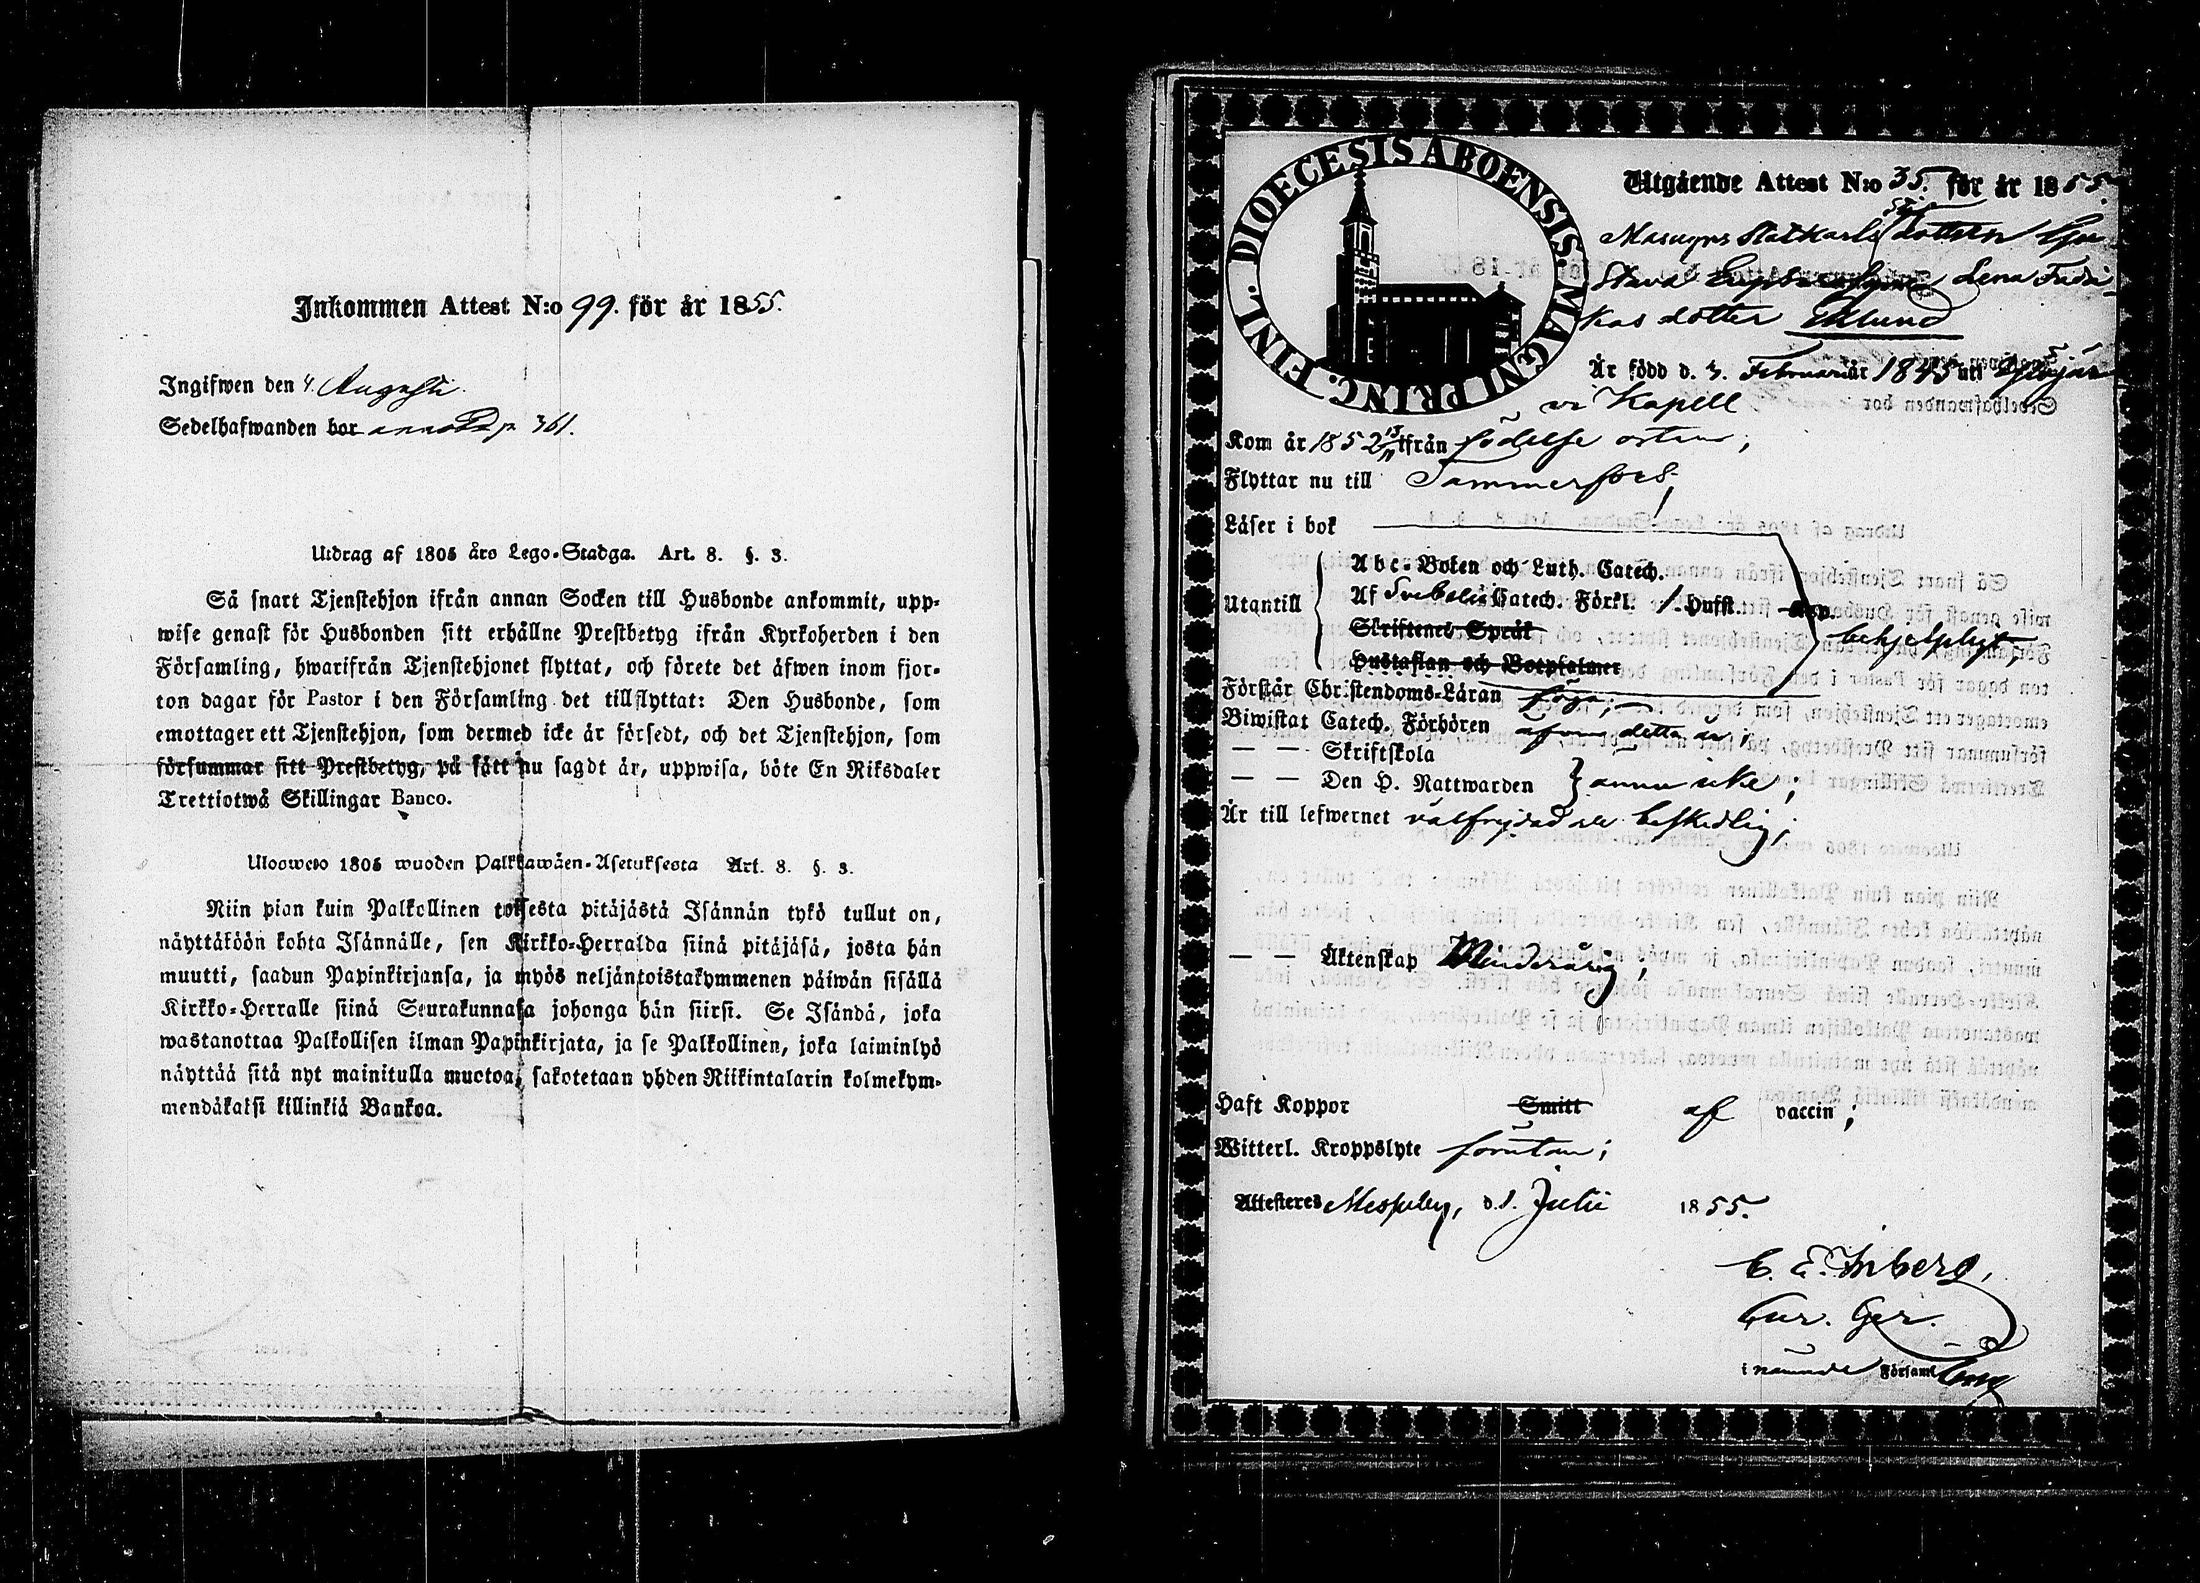 Inkommen Attest N:o 99. för år 1855.
Ingifwen den 4. Augusti.
Sedelhafwanden bor p. 361.
Utdrag af 1805 års Lego-Stadga. Art. 8. §. 3.
Så snart Tjenstehjon ifrån annan Socken till Husbonde ankommit, upp-
wise genast för Husbonden sitt erhållne Prestbetyg ifrån Kyrkoherden i den
Församling, hwarifrån Tjenstehjonet flyttat, och förete det äfwen inom fjor-
ton dagar för Pastor i den Församling det tillflyttat: Den Husbonde, som
emottager ett Tjenstehjon, som dermed icke är försedt, och det Tjenstehjon, som
försummar sitt Prestbetyg, på sätt nu sagdt är, uppwisa, böte En Riksdaler
Trettiotwå Skillingar Banco.
Uloswero 1805 wuoden Palkkawäen-Asetuksesta Art. 8. §. 3.
Niin pian kuin Palkollinen toisesta pitäjästä Isännän tykö tullut on,
näyttäköön kohta Isännälle, sen Kirkko-Herralda siinä pitäjäsä, josta hän
muutti, saadun Papinkirjansa, ja myös neljäntoistakymmenen päiwän sisällä
Kirkko-Herralle siinä Seurakunnasa johonga hän siirsi. Se Isändä, joka
wastanottaa Palkollisen ilman Papinkirjata, ja se Palkollinen, joka laiminlyö
näyttää sitä nyt mainitulla muotoa, sakotetaan yhden Riikintalarin kolmekym-
mendäkaksi killinkiä Bankoa.
DIOECESIS ABOENSIS. MAGNI PRINC. FINL.
Utgående Attest N:o 35. för år 1855.
Masugns Statkarls dottern
Stava Lena Fredri-
kas dotter Eklund
Är född d. 3. Februari år 1843 uti
Kapell
Kom år 1852 13/11 ifrån födelse orten;
Flyttar nu till Tammerfors;
Läser i bok
Utantill
Abc-Boken och Luth. Catech.
Af Svebelii Catech. Förkl. 1. Hufst.
Skriftenes Språk
behjelpligt;
Hustaflan och Botpsalmer
Förstår Christendoms-Läran föga;
Biwistat Catech. Förhören äfven detta år;
— — Skriftskola
— — Den H. Nattwarden } ännu icke;
Är till lefwernet välfrejdad och beskedlig;
— — Äktenskap Minderårig;
Haft Koppor Smitt af vaccin;
Witterl. Kroppslyte förutan;
Attesteres Messuby, d. 1. Julii 1855.
C. E. Inberg,
Cur. Ger.
i nämnde Församl.